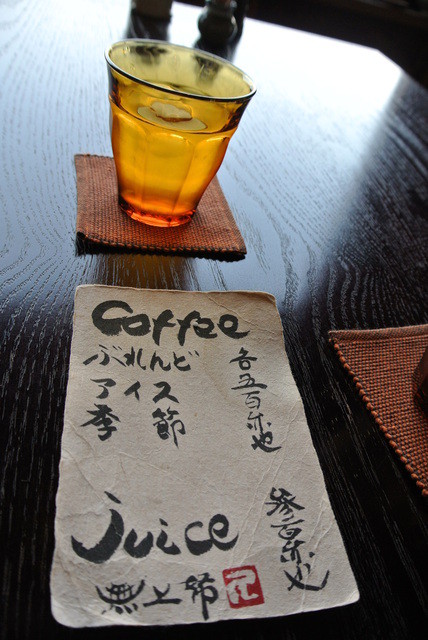 Coffee
ぶれんど
アイス
季節
各五百也
Juice
無上節
参百也